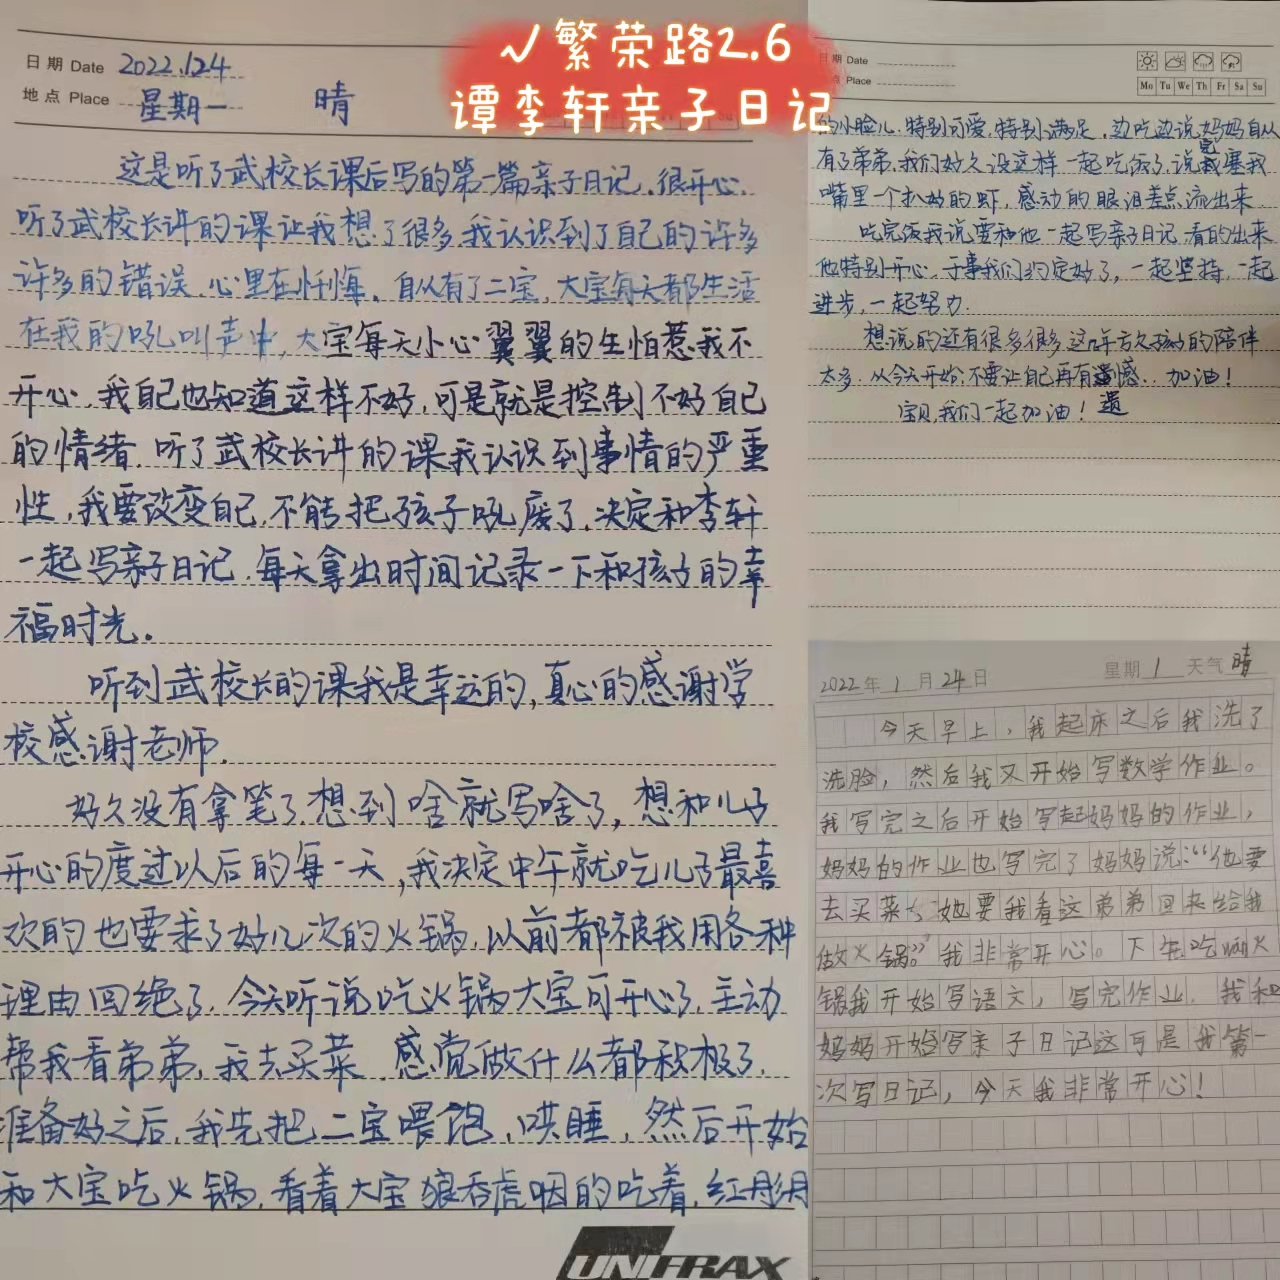 √繁荣路2.6
谭李轩亲子日记
日期 Date 2022.1.24
地点 Place 星期一 晴
这是听了武校长课后写的第一篇亲子日记.很开心.
听了武校长讲的课让我想了很多.我认识到了自己的许多
许多的错误.心里在忏悔。自从有了二宝,大宝每天都生活
在我的吼叫声中,大宝每天小心翼翼的生怕惹我不
开心.我自己也知道这样不好,可是就是控制不好自己
的情绪.听了武校长讲的课我认识到事情的严重
性,我要改变自己,不能把孩子吼废了.决定和李轩
一起写亲子日记.每天拿出时间记录一下和孩子的幸
福时光.
听到武校长的课我是幸运的,真心的感谢学
校感谢老师.
好久没有拿笔了.想到啥就写啥了,想和儿子
开心的度过以后的每一天,我决定中午就吃儿子最喜
欢的也要求了好几次的火锅.以前都被我用各种
理由回绝了.今天听说吃火锅大宝可开心了.主动
帮我看弟弟,我去买菜.感觉做什么都积极了.
准备好之后,我先把二宝喂饱,哄睡,然后开始
和大宝吃火锅.看着大宝狼吞虎咽的吃着,红彤彤
日期 Date
Place
Mo Tu We Th Fr Sa Su
的小脸儿.特别可爱.特别满足.边吃边说妈妈自从
有了弟弟,我们好久没这样一起吃饭了,说完塞我
嘴里一个扒好的虾,感动的眼泪差点流出来
吃完饭我说要和他一起写亲子日记.看的出来
他特别开心.于事我们约定好了,一起坚持,一起
进步,一起努力.
想说的还有很多很多,这些年亏欠孩子的陪伴
太多.从今天开始,不要让自己再有遗憾..加油!
宝贝,我们一起加油! 遗
2022年1月24日 星期1 天气晴
今天早上,我起床之后我洗了
洗脸,然后我又开始写数学作业。
我写完之后开始写起妈妈的作业,
妈妈的作业也写完了妈妈说:“他要
去买菜,她要我看这弟弟回来给我
做火锅。”我非常开心。下午吃wán火
锅我开始写语文,写完作业,我和
妈妈开始写亲子日记这可是我第一
次写日记,今天我非常开心!
UNIFRAX